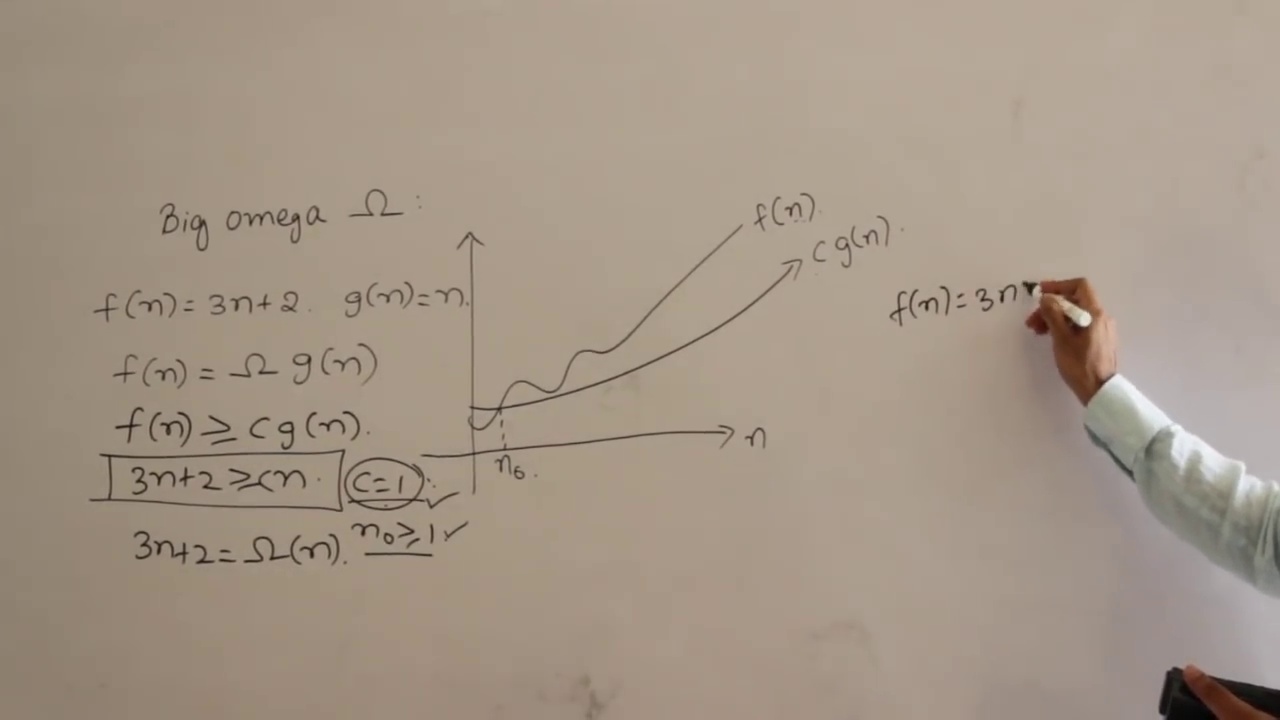 Big omega Ω :
f(n) = 3n+2. g(n) = n.
f(n) = Ω g(n)
f(n) ≥ c g(n).
3n+2 ≥ cn. c=1
n₀ ≥ 1 ✓
3n+2 = Ω(n).
f(n).
c g(n).
n
n₀.
f(n) = 3n